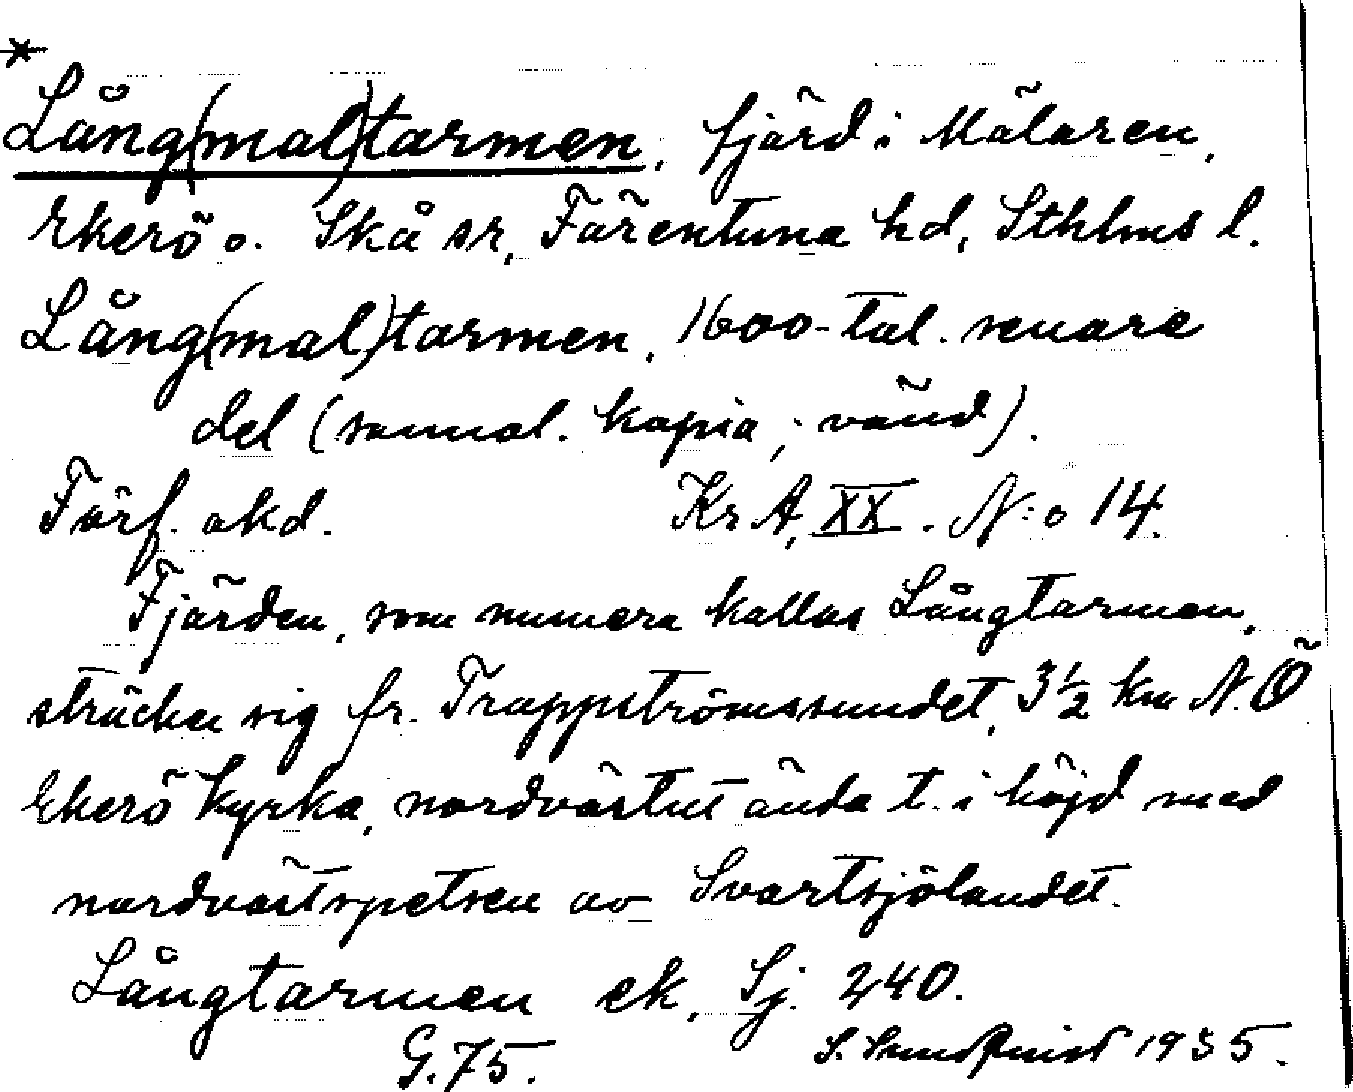 *
Lång(mal)tarmen, fjärd i Mälaren,
Ekerö o. Skå sr, Färentuna hd, Sthlms l.
Lång(mal)tarmen, 1600-tal. senare
del (sannol. kopia; vänd).
Förf. okd. Kr A, XX. N:o 14.
Fjärden, som numera kallas Långtarmen,
sträcker sig fr. Trappströmssundet, 3 1/2 km N.Ö
Ekerö kyrka, nordvästut ända t. i höjd med
nordvästspetsen av Svartsjölandet.
Långtarmen ek, Sj. 240.
G. 75. S. Sundquist 1935.